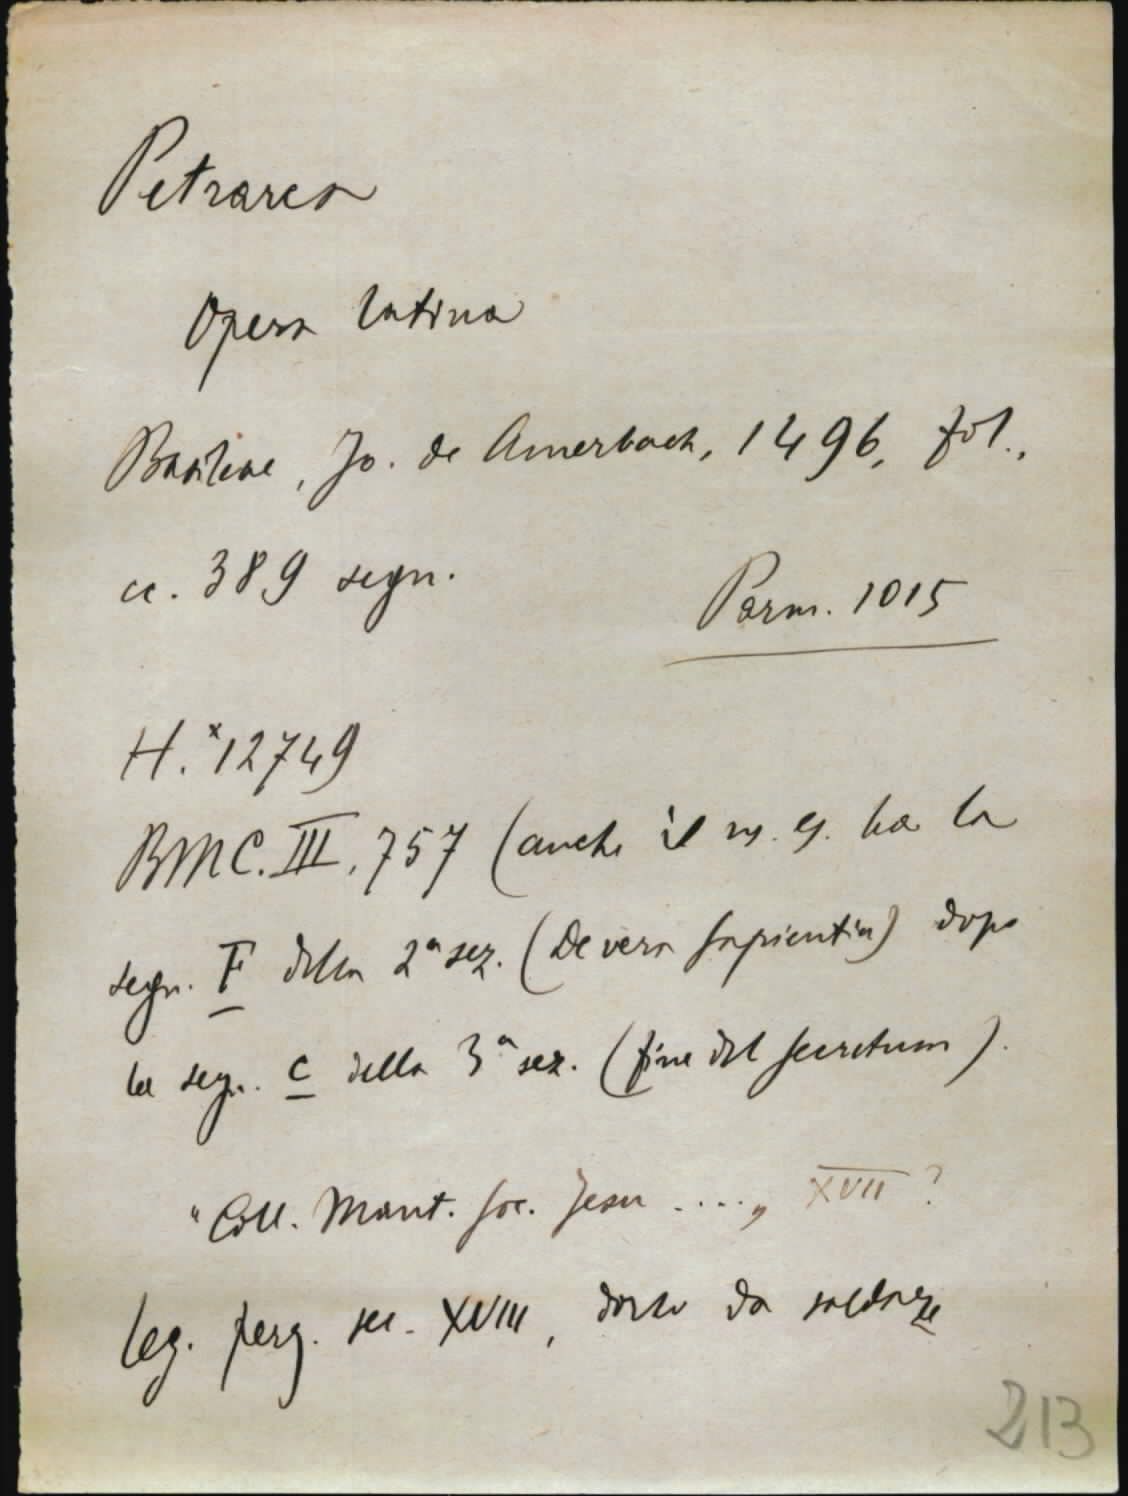 Petrarca
Opera latina
Basileae, Jo. de Amerbach, 1496, fol.,
cc. 389 segn.
Parm. 1015
H.*12749
BMC. III, 757 (anche il ns. es. ha la
segn. F della 2ª sez. (De vera sapientia) dopo
la segn. c della 3ª sez. (fine del secretum).
"Coll. Mant. Soc. Jesu ....„ XVII ?
leg. perg. sec. XVIII, dorso da saldare
213